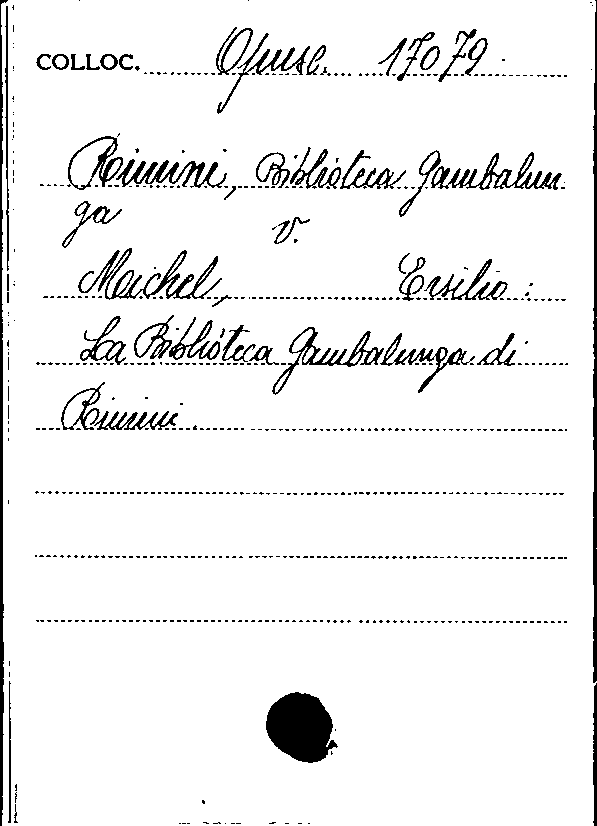 COLLOC. Opusc. 17079.
Rimini, Biblioteca Gambalun
ga v.
Michel, Ersilio:
La Biblioteca Gambalunga di
Rimini.